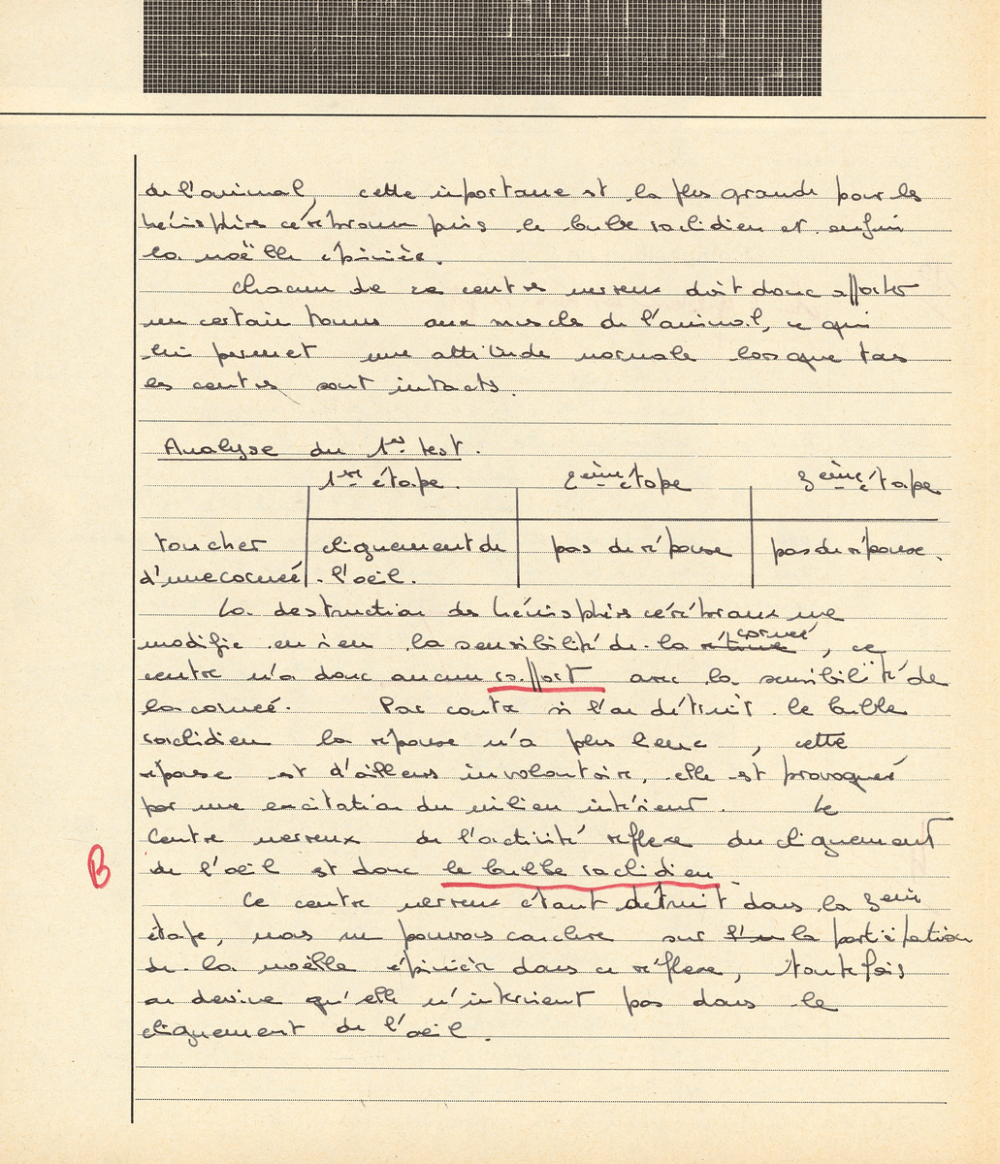 de l'animal, cette importance est la plus grande pour les
hémisphères cérébraux puis le bulbe rachidien et enfin
la moëlle épinière.
Chacun de ces centres nerveux doit donc apporter
un certain tonus aux muscles de l'animal, ce qui
lui permet une attitude normale lorsque tous
les centres sont intacts.
Analyse du 1er test.
1ère étape. 2ème étape 3ème étape
toucher clignement de pas de réponse pas de réponse.
d'une corneé l'oeil.
La destruction des hémisphères cérébraux ne
modifie en rien la sensibilité de la rétine corneé, ce
centre n'a donc aucun rapport avec la sensibilité de
la corneé. Par contre si l'on détruit le bulbe
rachidien la réponse n'a plus lieu, cette
réponse est d'ailleurs involontaire, elle est provoqueé
par une excitation du milieu intérieur. Le
Centre nerveux de l'activité réflexe du clignement
de l'oeil est donc le bulbe rachidien.
B
Ce centre nerveux étant détruit dans la 3eme
étape, nous ne pouvons conclure sur la participation
de la moëlle épinière dans ce réflexe, toutefois
on devine qu'elle n'intervient pas dans le
clignement de l'oeil.